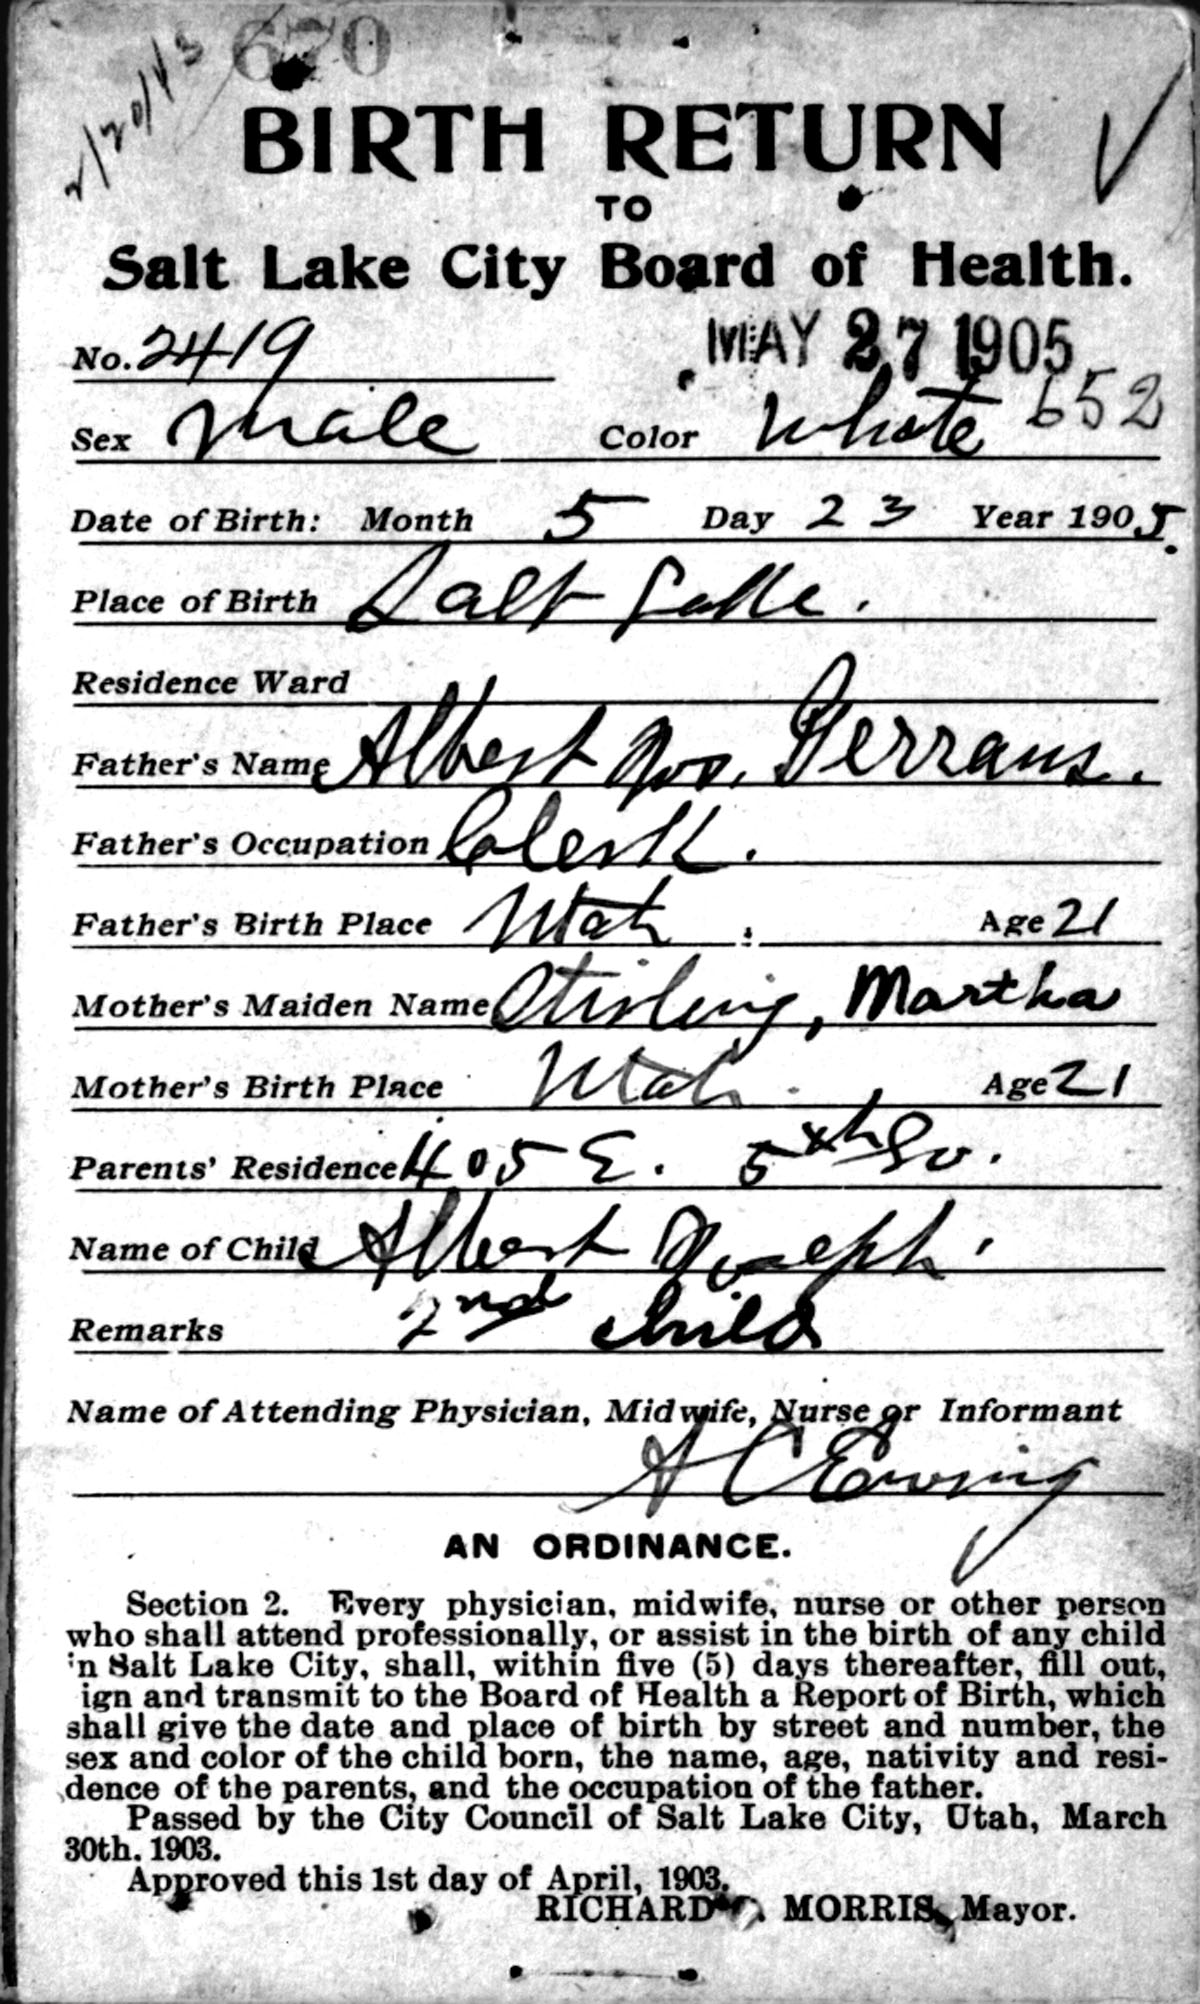 2/20/13 670
BIRTH RETURN
TO
Salt Lake City Board of Health.
No. 2419 MAY 27 1905
Sex Male Color White 652
Date of Birth: Month 5 Day 23 Year 1905.
Place of Birth Salt Lake.
Residence Ward
Father's Name Albert Jos. Gerrans.
Father's Occupation Clerk.
Father's Birth Place Utah. Age 21
Mother's Maiden Name Stirling, Martha
Mother's Birth Place Utah. Age 21
Parents' Residence 405 E. 5th So.
Name of Child Albert Joseph.
Remarks 2nd child
Name of Attending Physician, Midwife, Nurse or Informant
A C Ewing
AN ORDINANCE.
Section 2. Every physician, midwife, nurse or other person
who shall attend professionally, or assist in the birth of any child
in Salt Lake City, shall, within five (5) days thereafter, fill out,
ign and transmit to the Board of Health a Report of Birth, which
shall give the date and place of birth by street and number, the
sex and color of the child born, the name, age, nativity and resi-
dence of the parents, and the occupation of the father.
Passed by the City Council of Salt Lake City, Utah, March
30th. 1903.
Approved this 1st day of April, 1903.
RICHARD MORRIS, Mayor.